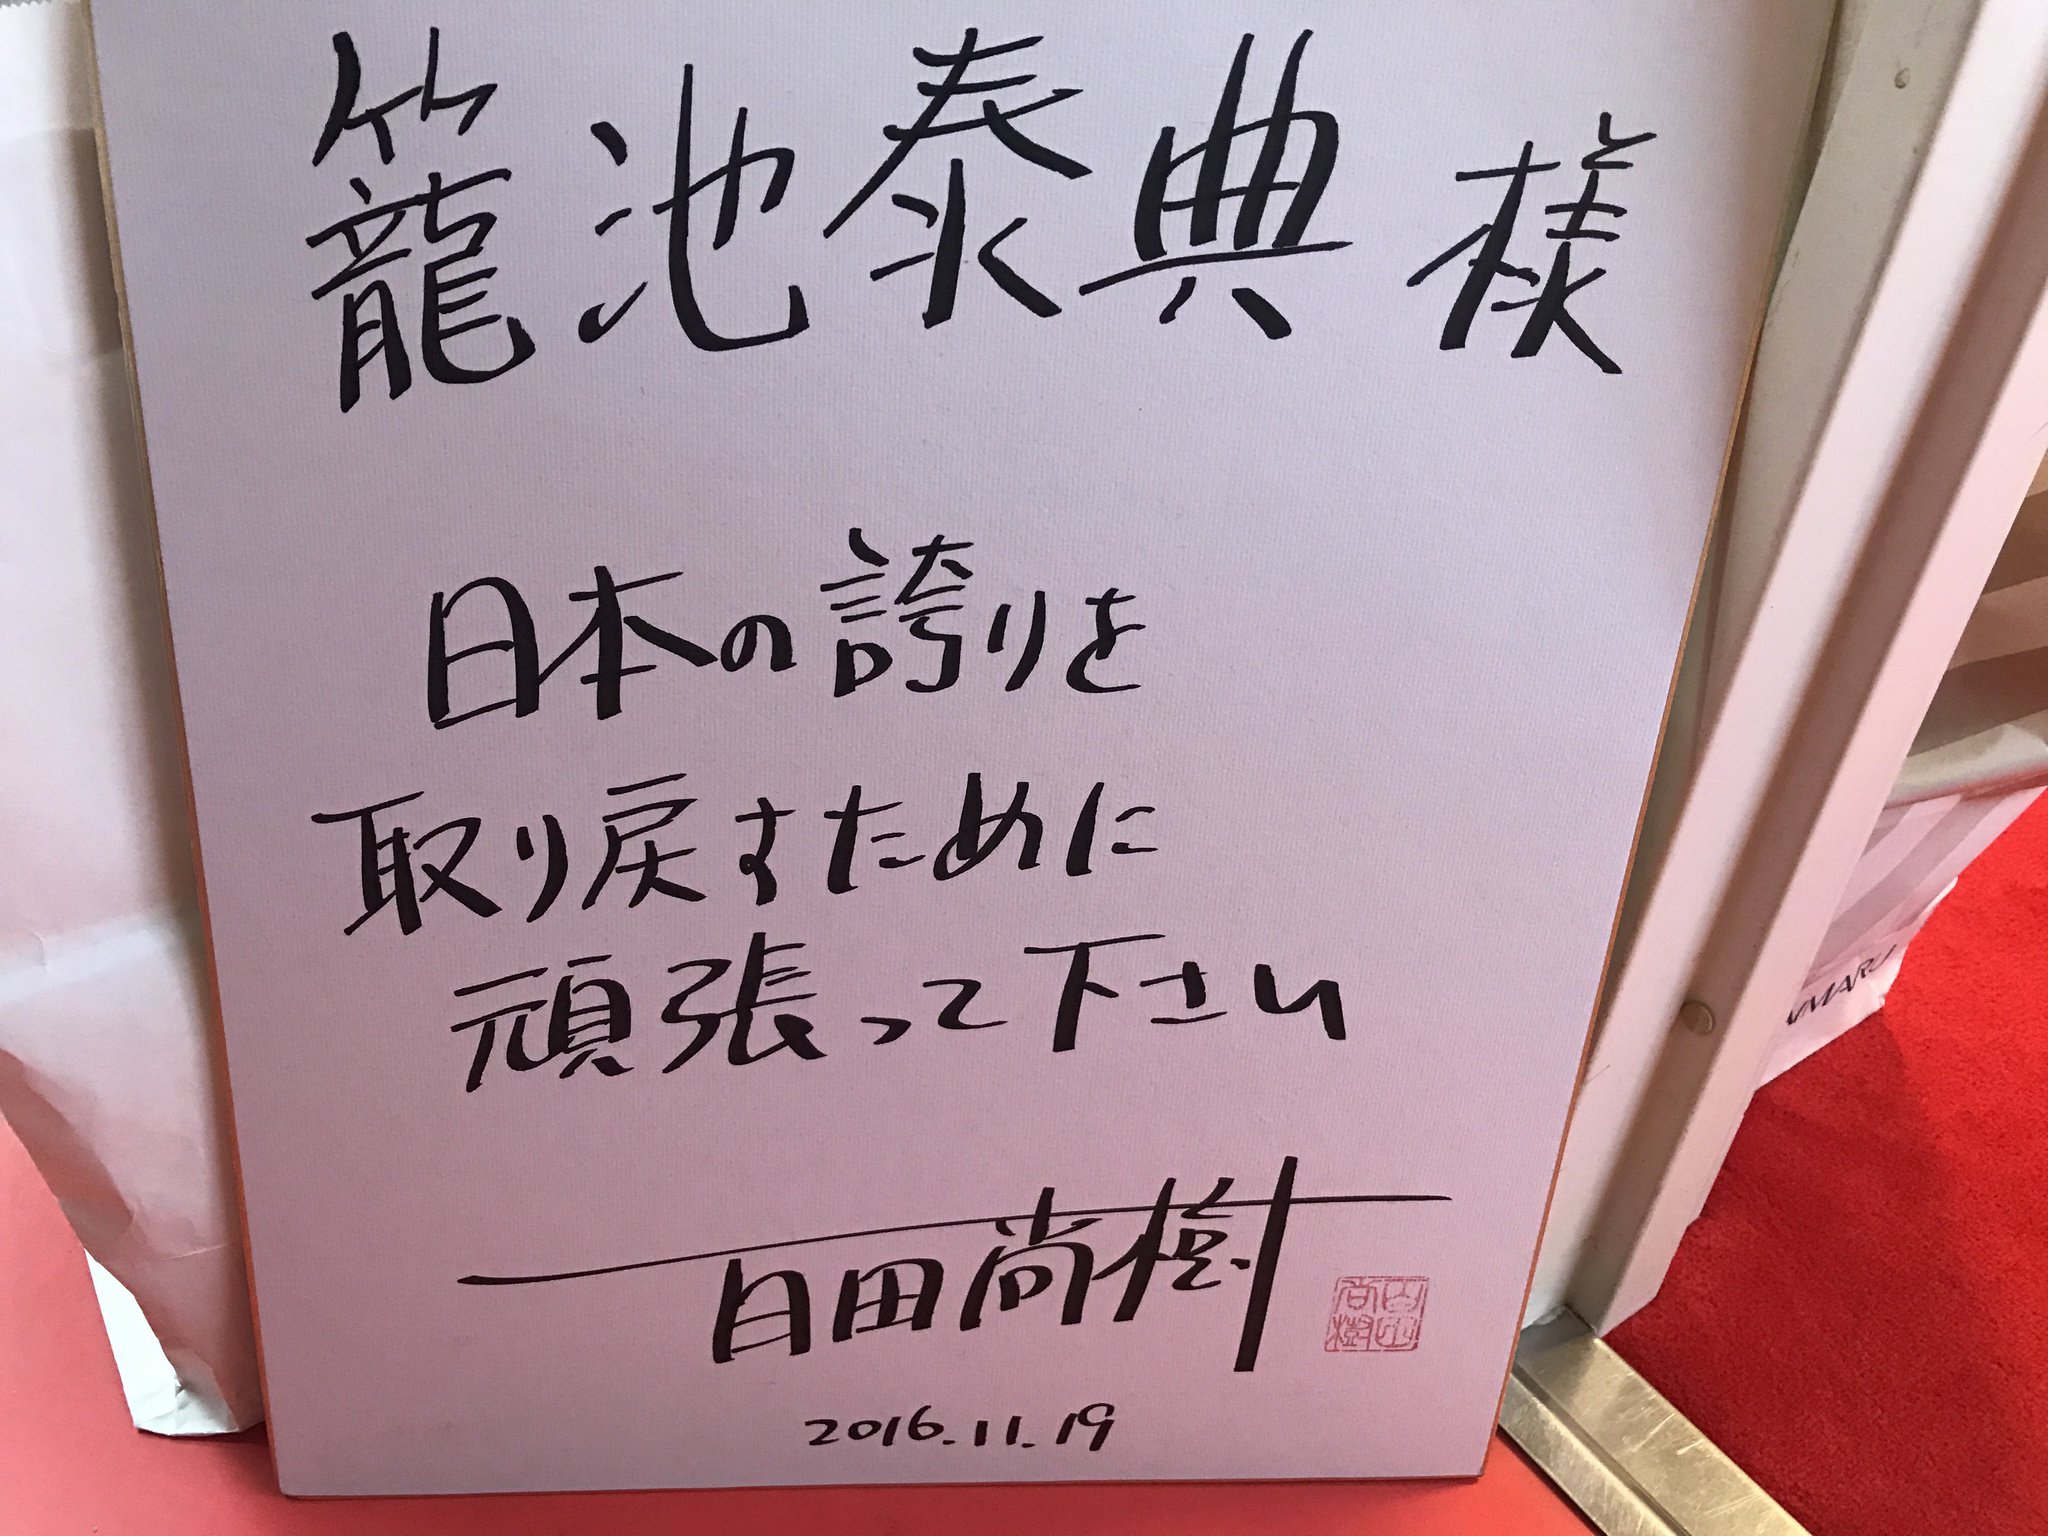 籠池泰典様
日本の誇りを
取り戻すために
頑張って下さい
百田尚樹
2016.11.19